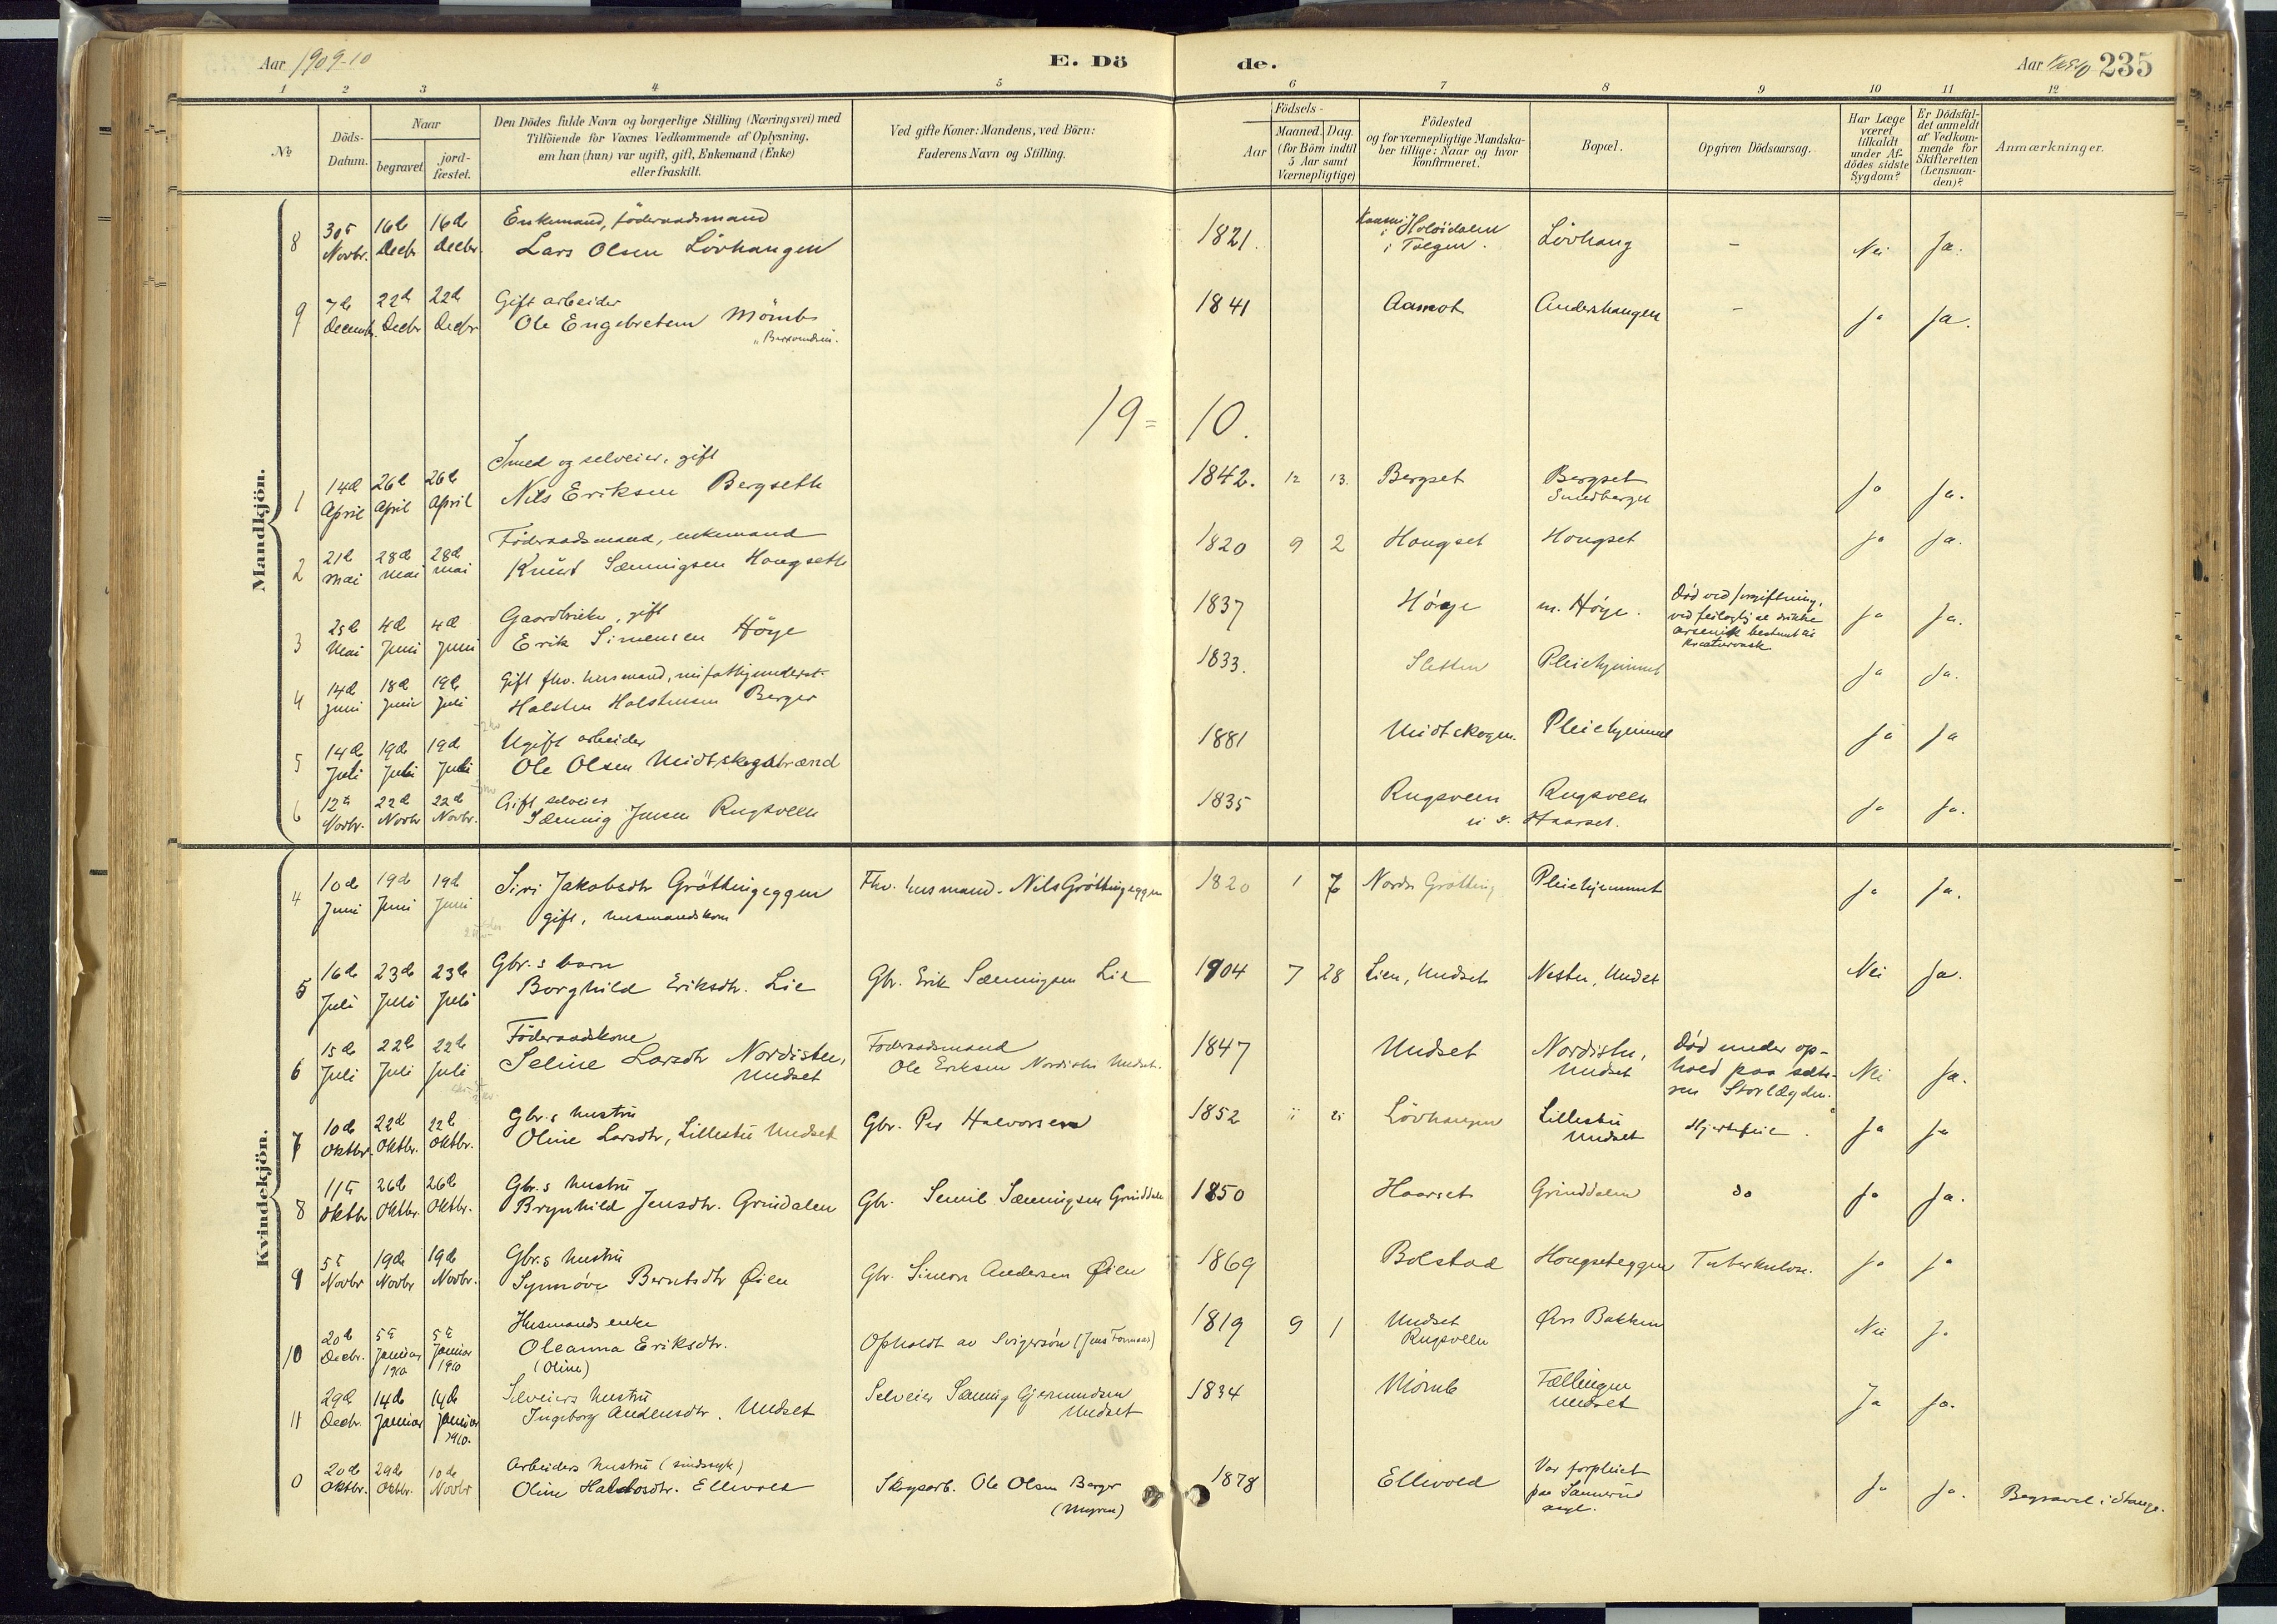 Aar 1909-10
E. Dö
de.
Aar
235
1 2 3 4 5 6 7 8 9 10 11 12
No
Döds-Datum.
Naar
begravet
jord-fæstet.
Den Dödes fulde Navn og borgerlige Stilling (Næringsvei) med
Tilföiende for Voxnes Vedkommende af Oplysning,
om han (hun) var ugift, gift, Enkemand (Enke)
eller fraskilt.
Ved gifte Koner: Mandens, ved Börn:
Faderens Navn og Stilling.
Födsels-
Aar
Maaned. Dag.
(for Börn indtil
5 Aar samt
Værnepligtige)
Födested
og for værnepligtige Mandska-
ber tillige: Naar og hvor
konfirmeret.
Bopæl.
Opgiven Dödsaarsag.
Har Læge
været
tilkaldt
under Af-
dödes sidste
Sygdom?
Er Dödsfal-
det anmeldt
af Vedkom-
mende for
Skifteretten
(Lensman-
den)?
Anmærkninger.
Mandkjön.
8 30te Novbr. 16de Decbr 16de Decbr. Enkemand, föderaadsmand
Lars Olsen Lövhaugen 1821. i Holöidalen
i Tolgen. Lövhaug - Nei Ja.
9 7de Decembr. 22de Decbr 22de Decbr Gift arbeider
Ole Engebretsen Mömb 1841 Aamot Andershaugen - Ja Ja.
19=10.
1 14de April 26de April 26de April Smed og selveier, gift
Nils Eriksen Bergseth 1842. 12 13. Bergset Bergset
Smedberget Ja Ja.
2 21de Mai 28de Mai 28de Mai Föderaadsmand, enkemand
Knud Sæmingsen Hougseth 1820 9 2 Hougset Hougset Ja Ja.
3 25de Mai 4de Juni 4de Juni Gaardbruker, gift
Erik Simensen Höye 1837 Höye m. Höye. Död ved forgiftning,
ved feilagtig at drikke
arsenik bestemt til
kreaturvask Ja Ja.
4 14de Juni 18de Juni 19de Juli Gift fhv. husmand, nu fattigunderst.
Halsten Halstensen Berger 1833. Sletten Pleiehjemmet Ja Ja.
5 14de Juli 19de Juli 19de Juli Ugift arbeider
Ole Olsen Midtskogsbrænd 1881 Midtskogen. Pleiehjemmet Ja Ja
6 12te Novbr. 22de Novbr 22de Novbr. Gift selveier
Sæming Jensen Rugsveen 1835 Rugsveen Rugsveen
Haarset. Ja Ja.
Kvindekjön.
4 10de Juni 19de Juni 19de Juni Siri Jakobsdtr Gröttingeggen
gift, husmandskone Fhv. husmand. Nils Gröttingeggen 1820 1 7 Nordr Grötting Pleiehjemmet Ja Ja.
5 16de Juli 23de Juli 23de Juli Gbr.s barn
Borghild Eriksdtr. Lie Gbr. Erik Sæmingsen Lie 1904 7 28 Lien, Undset Nestu, Undset Nei Ja.
6 15de Juli 22de Juli 22de Juli Föderaadskone
Seline Larsdtr Nordistu,
Undset Föderaadsmand
Ole Eriksen Nordistu Undset. 1847 Undset Nordistu,
Undset Död under op-
hold paa sæte-
ren Storlægden. Nei Ja.
7 10de Oktbr. 22de Oktbr. 22de Oktbr. Gbr.s hustru
Oline Larsdtr, Lillestu Undset Gbr. Per Halvorsen 1852 11 21 Lövhaugen Lillestu
Undset Hjertefeil. Ja Ja
8 11te Oktbr 26de Oktbr. 26de Oktbr. Gbr.s hustru
Brynhild Jensdtr. Grindalen Gbr. Semil Sæmingsen Grinddalen 1850 Haarset Grinddalen do Ja Ja.
9 5te Novbr 19de Novbr 19de Novbr. Gbr.s hustru
Synnöve Berntsdtr Øien Gbr. Simon Andersen Øien 1869 Bolstad Hougseteggen Tuberkulose. Ja Ja
10 20de Decbr. 5te Januar 1910 5te Januar 1910 Husmands enke
Oleanna Eriksdtr.
(Oline) Opholdt av Svigersön (Jens Formoas) 1819 9 1 Undset
Rugsveen Øvr Bakken Nei Ja
11 29de Decbr. 14de Januar 14de Januar 1910. Selveiers hustru
Ingeborg Andersdtr. Undset Selveier Sæming Gjermundsen
Undset 1834 Mömb Fællingen
Undset Ja Ja.
0 20de Oktbr. 29de Oktbr. 10de Novbr Arbeiders hustru (sindssyk)
Oline Halvorsdtr. Ellevold Skogsarb. Ole Olsen Berger
(Myren) 1878 Ellevold Var forpleiet
paa Sannerud
asyl. Ja Ja. Begravet i Stange.